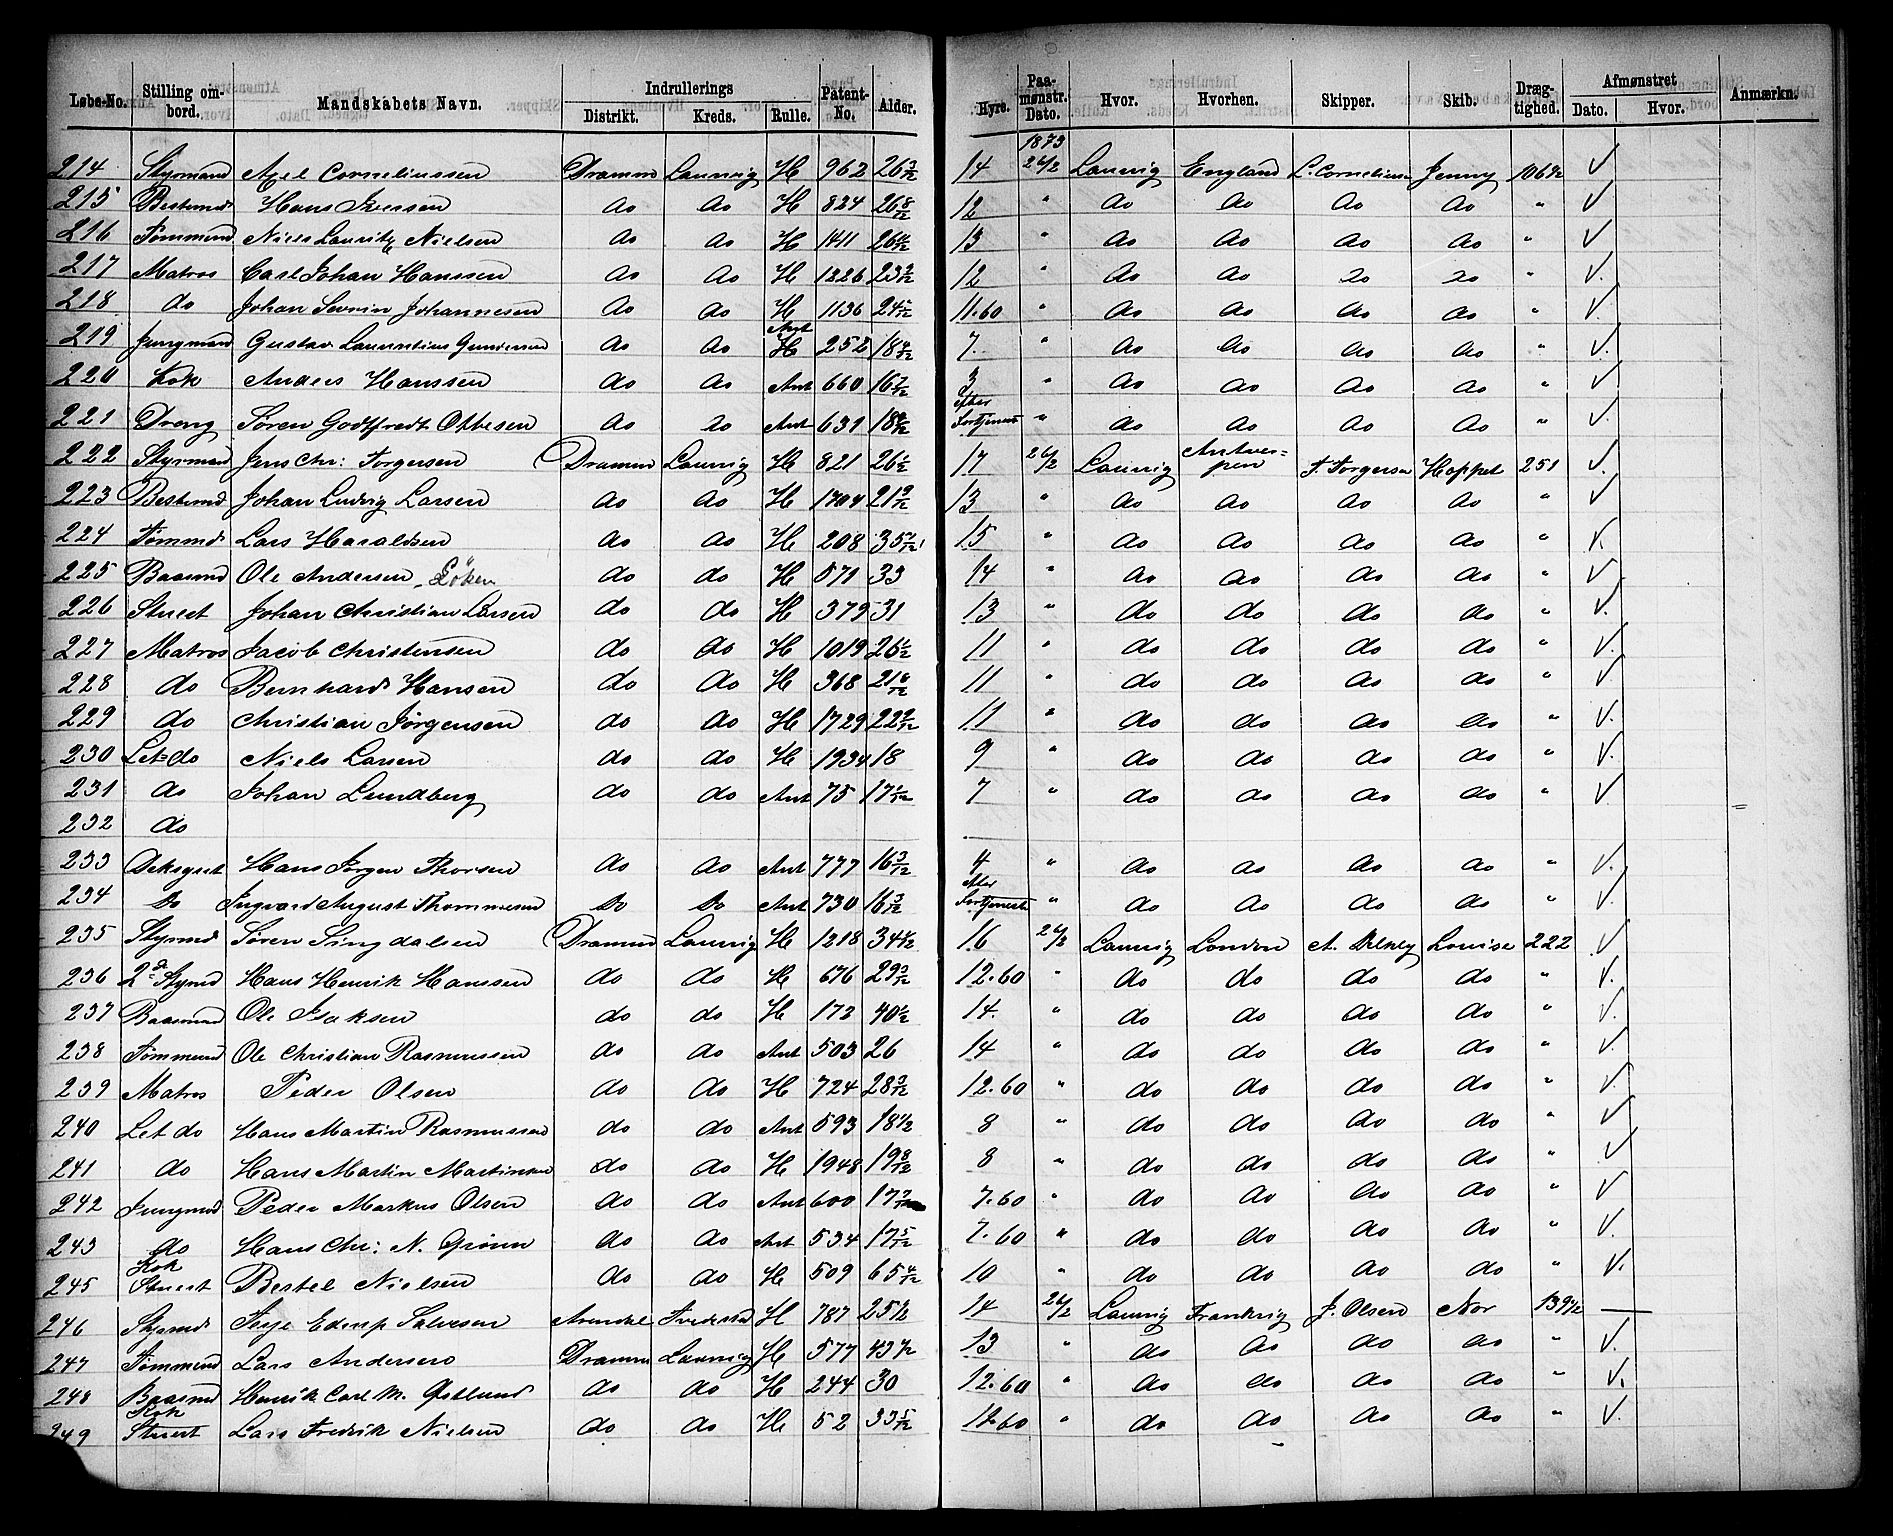 Løbe-No. Stilling ombord. Mandskabets Navn. Indrullerings Distrikt. Kreds. Rulle. Patent-No. Alder. Hyre. Paamønstr. Dato. Hvor. Hvorhen. Skipper. Skib. Drægtighed. Afmønstret Dato. Hvor. Anmærkn.
1873
214 Styrmand Axel Corneliussen Dramm Laurvig H 962 26 3/12 14 26/2 Laurvig England L. Corneliusen Jenny 106½ V
215 Bestmd Hans Iversen do do H 824 26 8/12 12 " do do do do " V
216 Tømmmd Niels Lauritz Nielsen do do H 1411 26 4/12 13 " do do do do " V
217 Matros Carl Johan Hanssen do do H 1226 23 2/12 12 " do do do do " V.
218 do Johan Sevrin Johannesen do do H 1136 24 11.60 " do do do do " V.
219 Jungmand Gustav Laurentius Gundersen do do Ant H 252 18 4/12 7. " do do do do " V.
220 Kok Anders Hanssen do do Ant 660 16 7/12 3 " do do do do " V
221 Dreng Søren Godtfredt Ottesen do do Ant 631 18 efter Fortjenest " do do do do " V.
222 Styrmand Jens Chr: Torgersen Dramm Laurvig H 821 26½ 17 26/2 Laurvig Antwerpen T. Torgersen Hoppet 251 V.
223 Bestmd Johan Ludvig Larsen do do H 1704 21 9/12 13 " do do do do " V
224 Tømmd Lars Haraldsen do do H 208 35 15 " do do do do " V.
225 Baasmd Ole Andersen Löken do do H 571 33 14 " do do do do " V.
226 Stuert Johan Christian Larsen do do H 379 31 13 " do do do do " V.
227 Matros Jacob Christensen do do H 1019 26½ 11 " do do do do " V.
228 do Bernhard Hansen do do H 368 21 6/12 11 " do do do do " V
229 do Christian Jørgensen do do H 1729 22 9/12 11 " do do do do " V.
230 Let=do Niels Larsen do do H 1934 18 9 " do do do do " V.
231 do Johan Lundberg do do Ant 75 17 7 " do do do do " V
232 do
233 Deksgut Hans Jørgen Thorsen do do Ant 777 16 3/12 4 " do do do do " V.
234 do Ingvard August Thommesen do do Ant 730 16 3/12 efter Fortjeneste " do do do do " V.
235 Styrmd Søren Lingdalsen Dramm Laurvig H 1218 34½ 16 26/2 Laurvig London A. Louise 222 V
236 2de Stymd Hans Henrik Hanssen do do H 676 29 3/12 12.60 " do do do do " V.
237 Baasmand Ole Isaksen do do H 172 40½ 14. " do do do do " V.
238 Tømmmd Ole Christian Rasmussen do do Ant 503 26 14 " do do do do " V.
239 Matros Peder Olsen do do H 724 28 3/12 12.60 " do do do do " V.
240 Let do Hans Martin Rasmussen do do Ant 593 18½ 8 " do do do do " V
241 do Hans Martin Martinsen do do H 1948 19 8/12 8 " do do do do " V
242 Jungmd Peder Markus Olsen do do Ant 600 17 7.60 " do do do do " V
243 do Hans Chr: N. Grønn do do Ant 534 17 5/12 7.60 " do do do do " V.
245 Kok Stuert Bertel Nielsen do do H 509 65 4/12 10 " do do do do " V.
246 Styrmd Terje Ederup Salvesen Arendal Fredrstd H 787 25½ 14 26/2 Laurvig Frankrig J. Olsen Nor 139½ —
247 Tømmmd Lars Andersen Dramm Laurvig H 577 43½ 13 " do do do do " V.
248 Baasmd Henrik Carl M. Østlund do do H 244 30 12.60 " do do do do " V.
249 Kok Stuert Lars Fredrik Nielsen do do H 52 33 5/12 12.60 " do do do do " V.